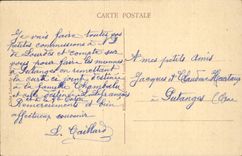 CARTE POSTALE
Je vais faire toutes vos
petites commissions à N. D.
de Lourdes et compte sur
vous pour faire les miennes
à Putanges en remettant
la carte ci jointe destinée
à la famille Chambalu
et
Remerciements et bien
affectueux souvenir
S. Gaillard
A mes petits amis
Jacques et Claudine
à
Putanges Orne